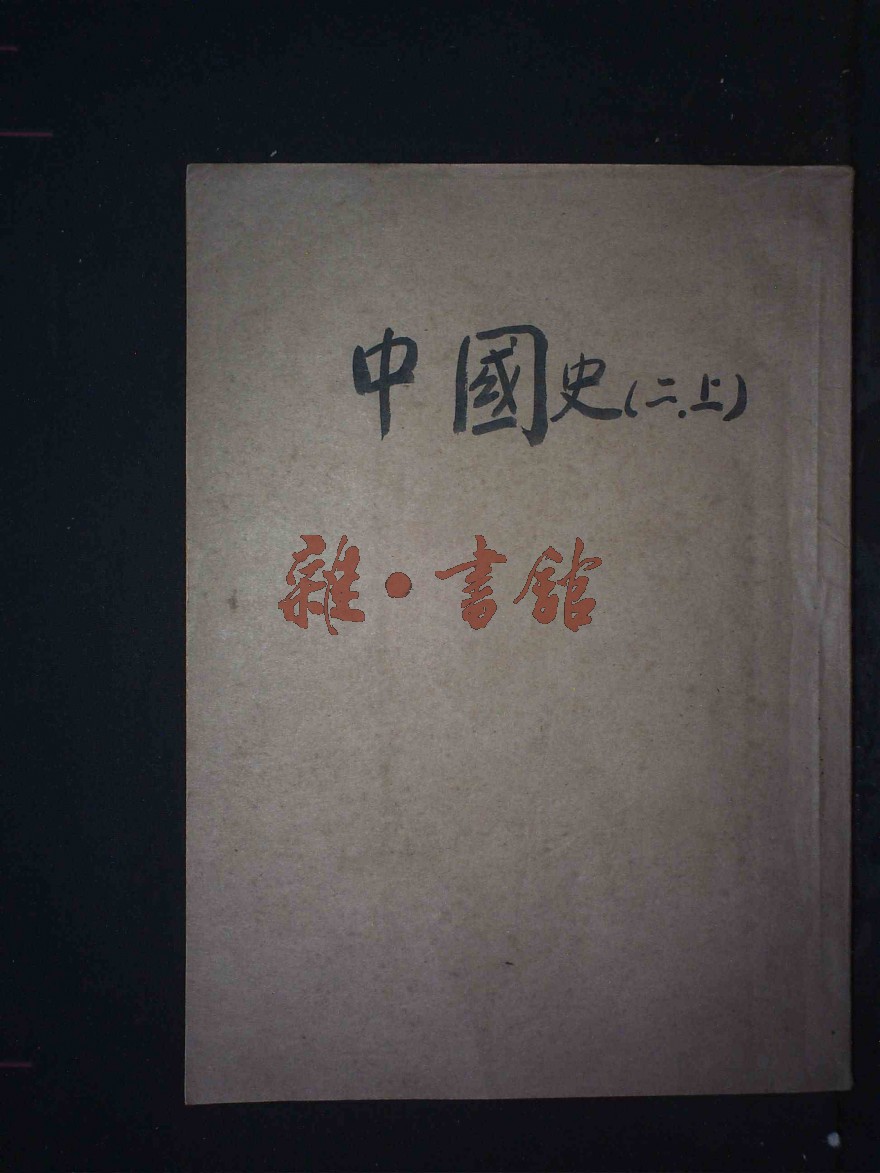 中國史(二.上)
雜·書館